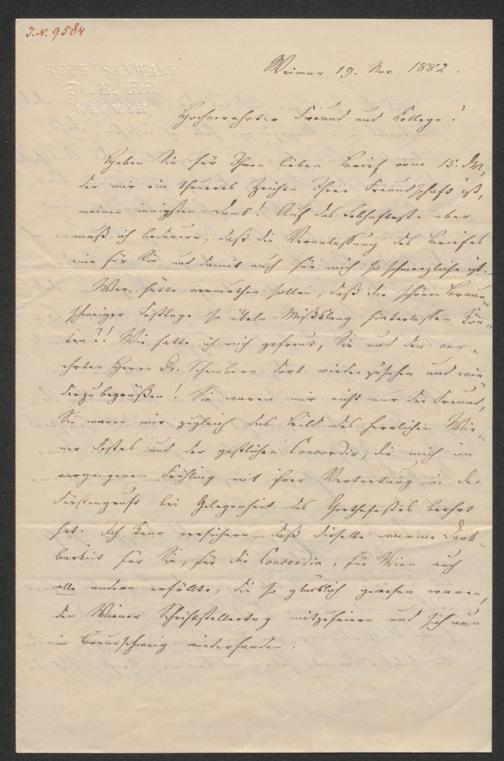 J.N. 9584
RECHTSANWALT
WEIMAR
Weimar 19. Nov. 1882.
Hochverehrter Freund und College!
Haben Sie für Ihren lieben Brief vom 15. d. M.,
der mir ein theueres Zeichen Ihrer Freundschaft ist,
meinen innigsten Dank! Auf das Lebhafteste aber
muß ich bedauern, daß die Veranlassung des Briefes
eine für Sie und damit auch für mich so schmerzliche ist.
Wer hätte vermuthen sollen, daß die schönen Braun-
schweiger Festtage so übeln Mißklang hinterlassen könn-
ten?! Wie hatte ich mich gefreut, Sie und den ver-
ehrten Herrn Dr. dort wiederzusehen und wie-
derzubegrüßen! Sie waren mir nicht nur der Freund,
Sie waren mir zugleich das Bild des herrlichen Wie-
ner Festes und der gastlichen Concordia, die mich im
vergangenen Frühling mit ihrer Vertretung in der
Fürstengruft bei Gelegenheit des Goethefestes beehrt
hat. Ich kann versichern, daß dieselbe warme Dank-
barkeit für Sie, für die Concordia, für Wien auch
alle andern erfüllte, die so glücklich gewesen waren,
den Wiener Schriftstellertag mitzufeiern und sich nun
in Braunschweig wiederfanden.